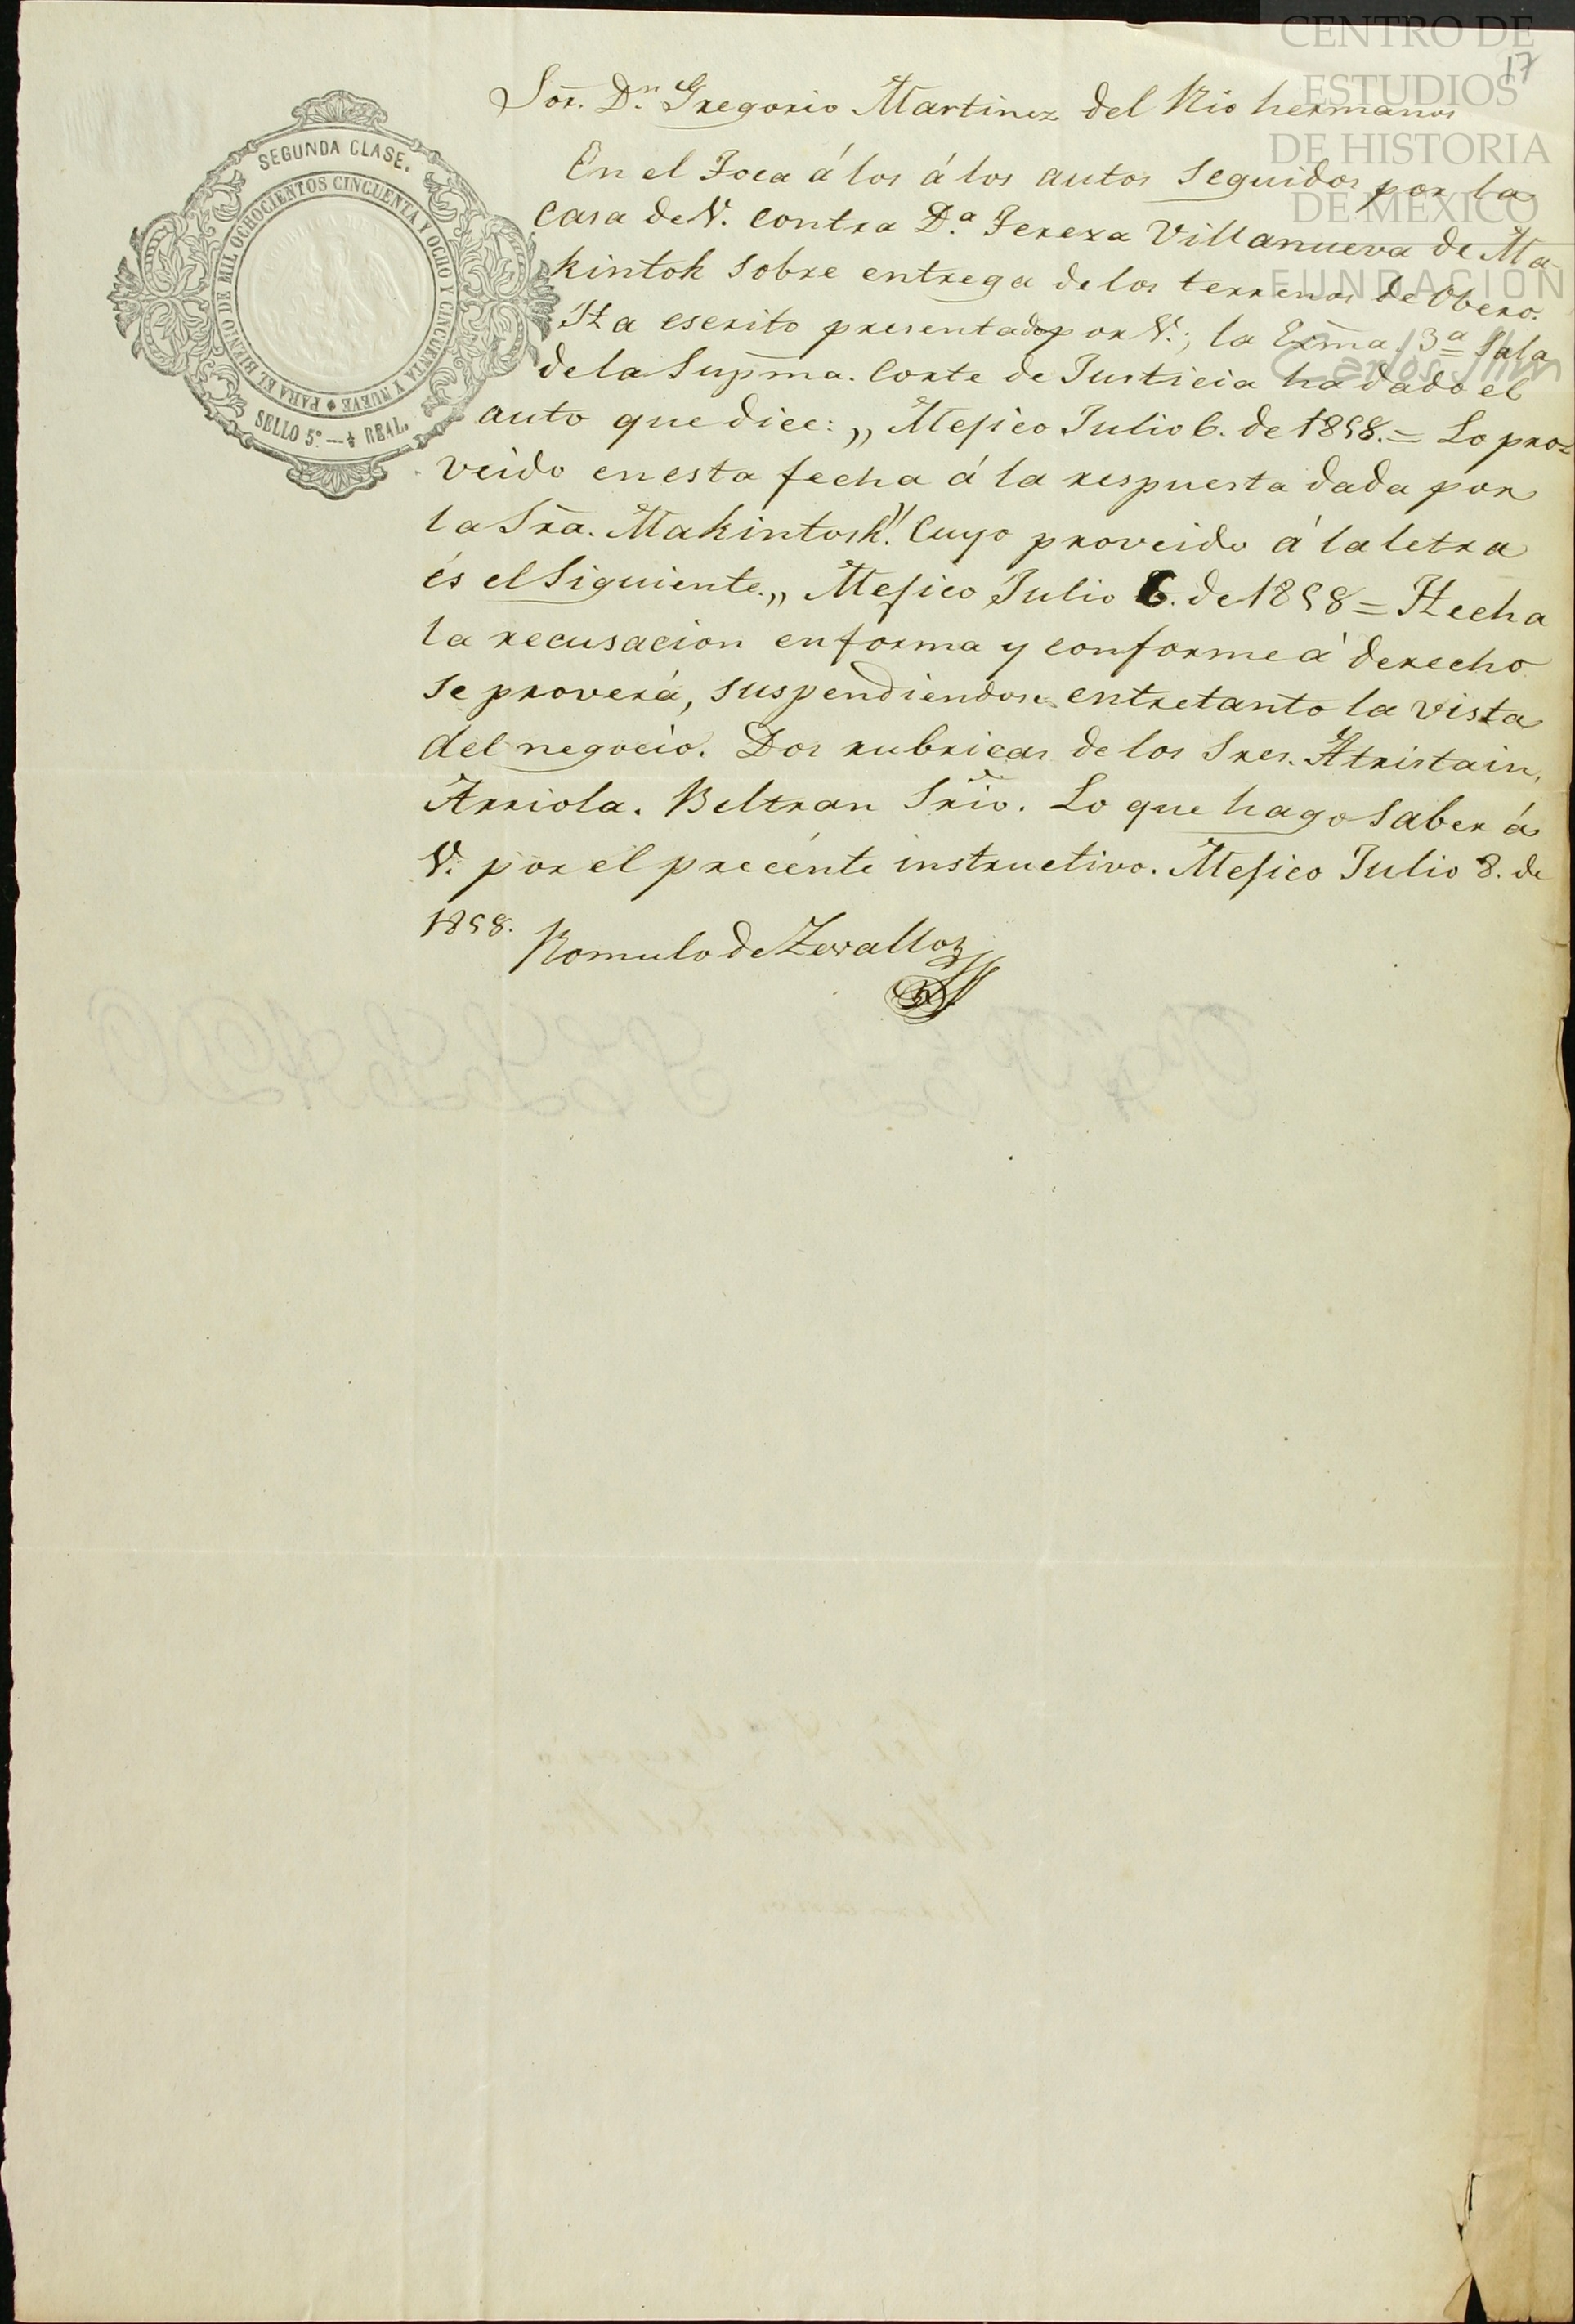 CENTRO DE
ESTUDIOS
DE HISTORIA
DE MÉXICO
FUNDACIÓN
Carlos Slim
17
SEGUNDA CLASE.
PARA EL BIENIO DE MIL OCHOCIENTOS CINCUENTA Y OCHO Y CINCUENTA Y NUEVE
SELLO 5º — ½ REAL.
Sor. Dn. Gregorio Martinez del Rio hermanos
En el Toca á los á los autos seguidos por la
casa de V. contra Da. Tereza Villanueva de Ma-
kintok sobre entrega de los terrenos de Obero.
Ha escrito presentado por V.; la Exma. 3a Sala
de la Supma. Corte de Justicia ha dado el
auto que dice: „ Mejico Julio 6. de 1858. = Lo pro=
veido en esta fecha á la respuesta dada por
la Sra. Makintosh." Cuyo proveido á la letra
és el siguiente. „ Mejico Julio 6. de 1858 = Hecha
la recusacion en forma y conforme á derecho
se proverá, suspendiendose entretanto la vista
del negocio. Dos rubricas de los Sres. Atristain,
Arriola. Beltran Srio. Lo que hago saber á
V. por el precénte instructivo. Mejico Julio 8. de
1858.
Romulo de Zevalloz